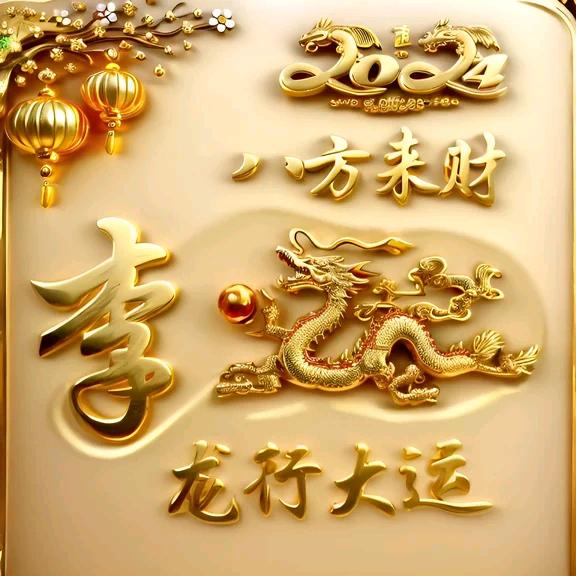 2024
八方来财
李
龙行大运